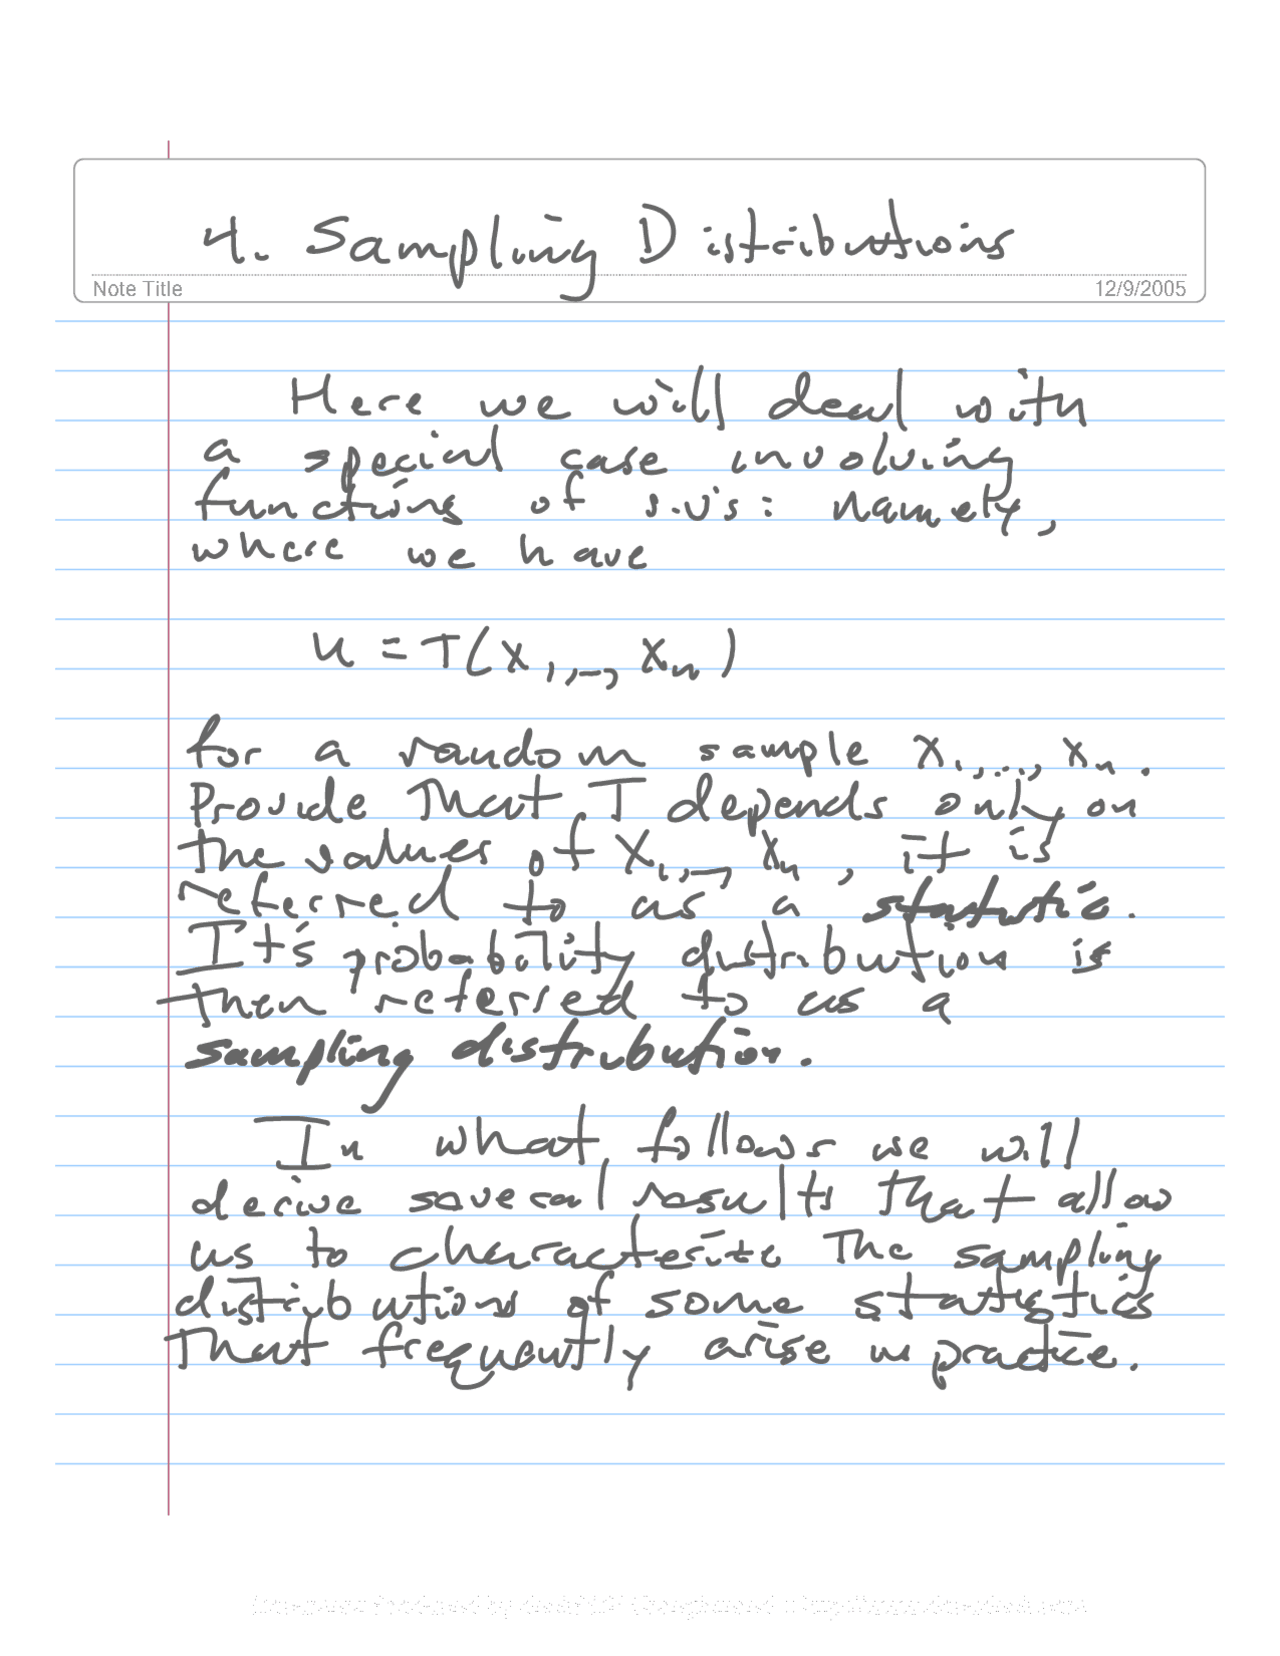 4. Sampling Distributions
Note Title
12/9/2005
Here we will deal with
a special case involving
functions of r.v's: namely,
where we have
u = T(X1,..., Xn)
for a random sample X1,..., Xn.
Provide that T depends only on
the values of X1,..., Xn, it is
referred to as a statistic.
It's probability distribution is
then referred to as a
sampling distribution.
In what follows we will
derive several results that allow
us to characterize the sampling
distributions of some statistics
that frequently arise in practice.